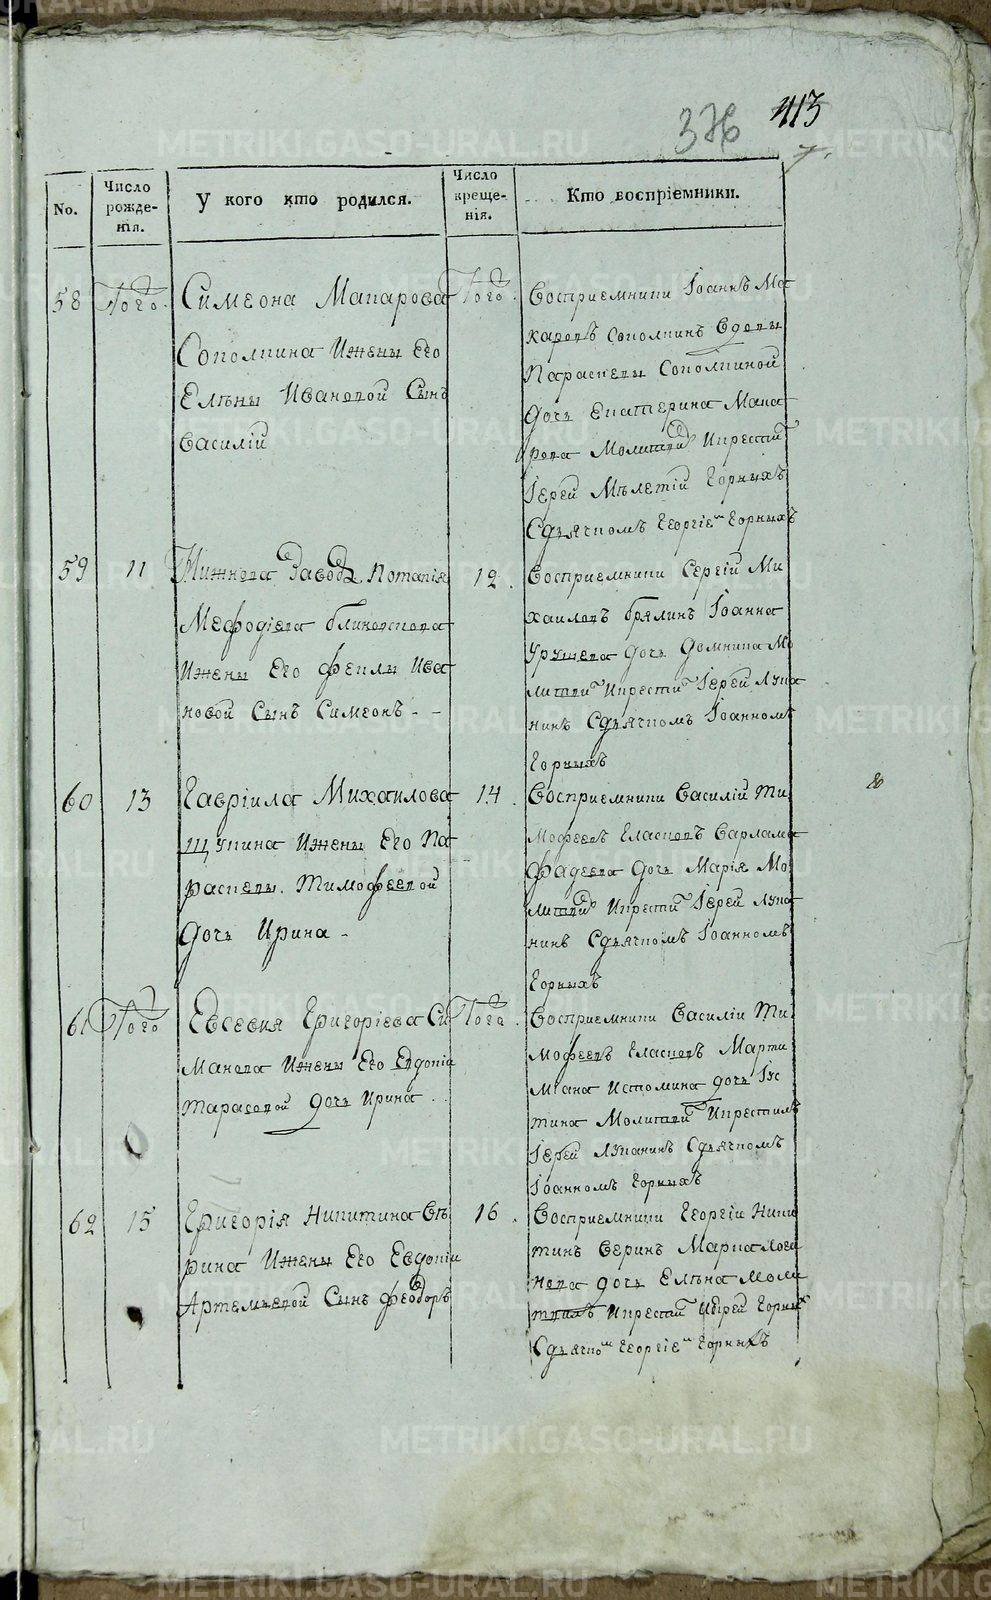 376 413
No.
Число рожде- нія.
У кого кто родился.
Число креще- нія.
Кто воспріемники.
58
Того
Симеона Макарова
Соколкина Ижены его
Елѣны Ивановой Сынъ
Василій
Того
Восприемники Іоаннъ Ма
каровъ Соколкинъ вдовы
Параскевы Соколкиной
дочь Екатерина Мака
рова Молитвой Икрестил
Іерей Мѣлетій Горныхъ
Сдьячкомъ Георгіемъ Горныхъ
59
11
Нижнева завода Потапія
Мефодіева блиновскова
Ижены его феклы Ива
новой Сынъ Симеонъ - -
12
Восприемники Сергій Ми
хаиловъ брялинъ Іоанна
Урушева дочь Домника Мо
литвил Икрестил Іерей Лука
нинъ Сдьячкомъ Іоанномъ
Горныхъ
60
13
Гавріила Михаилова
Щукина Ижены его Па
раскевы Тимофеевой
дочь Ирина -
14
Восприемники Василій Ти
мофеевъ Гласковъ Варлама
фадеева дочь Марія Мо
литвой Икрестил Іерей Лука
нинъ Сдьячкомъ Іоанномъ
Горныхъ
61
Того
Евсевия Григоріева Си
манова Ижены его Евдокіи
Тарасовой дочь Ирина
Того
Восприемники Василіи Ти
мофеевъ Гласковъ Марти
міана Истомина дочь Іус
тина Молитвой Икрестилъ
Іерей Луканинъ Сдьячкомъ
Іоанномъ Горныхъ
62
15
Григорія Никитина Ве
рина Ижены его Евдокіи
Артемьевой Сынъ Феодоръ
16
Восприемники Георгіи Ники
тинъ Веринъ Марка Логи
нова дочь Елѣна Моли
твилъ Икрестил Іерей Горных
Сдьячком Георгіем Горныхъ
METRIKI.GASO-URAL.RU